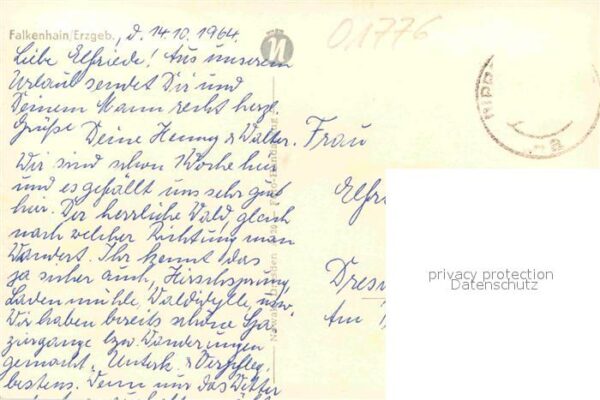 Falkenhain/Erzgeb., d. 14.10.1964.
Liebe Elfriede! Aus unserem
Urlaub sendet Dir und
Deinem Mann recht herzl.
Grüße Deine Henny & Walter.
Wir sind schon 1 Woche hier
und es gefällt uns sehr gut
hier. Der herrliche Wald, gleich
nach welcher Richtung man
wandert. Ihr kennt das
ja sicher auch, Hirschsprung,
Ladenmühle, Waldidylle, usw.
Wir haben bereits schöne Spa-
ziergänge bzw. Wanderungen
gemacht. Unterk. & Verpfleg.
bestens. Wenn nur das Wetter
01776
Frau
Elfri
Dresd
Am
privacy protection
Datenschutz